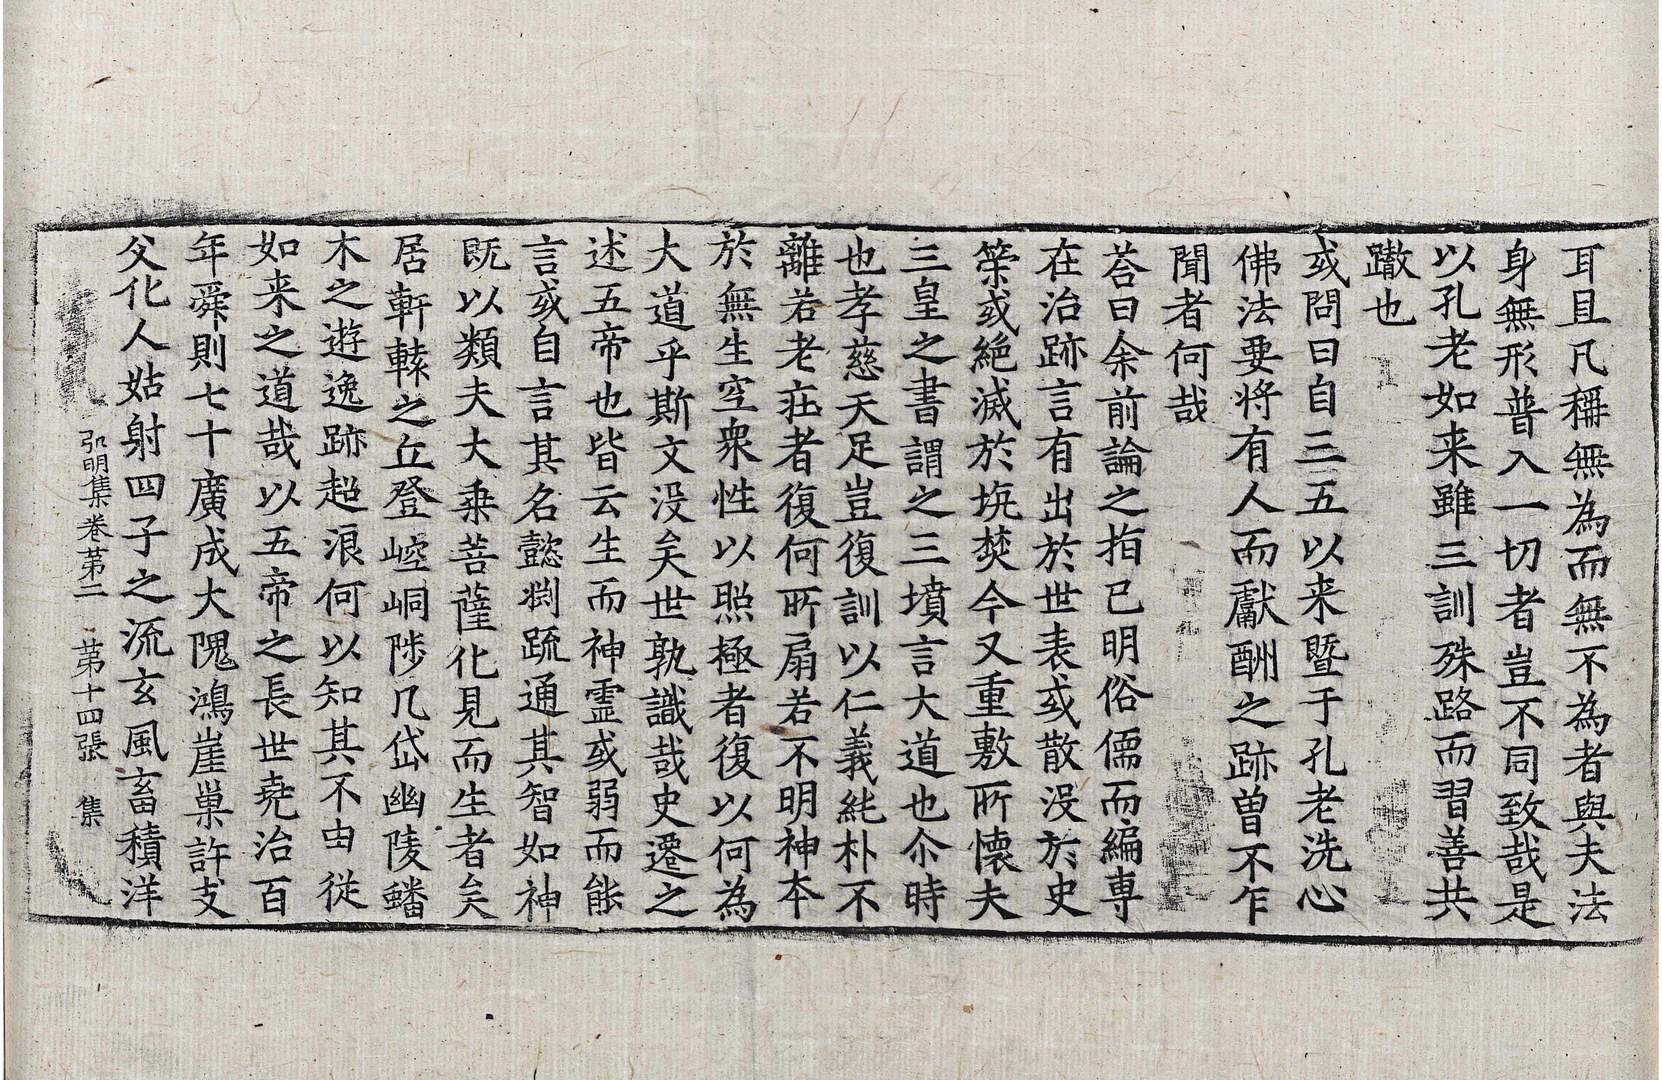 耳且凡稱無為而無不為者與夫法
身無形普入一切者豈不同致哉是
以孔老如来雖三訓殊路而習善共
轍也
或問曰自三五以来暨于孔老洗心
佛法要将有人而獻酬之跡曽不乍
聞者何哉
荅曰余前論之指已明俗儒而編專
在治跡言有出於世表或散没於史
䇿或絶滅於坑焚今又重敷所懷夫
三皇之書謂之三墳言大道也尒時
也孝慈天足豈復訓以仁義純朴不
離若老莊者復何所扇若不明神本
於無生空衆性以照極者復以何為
大道乎斯文没矣世孰識哉史遷之
述五帝也皆云生而神靈或弱而能
言或自言其名懿渕䟽通其智如神
既以類夫大乗菩薩化見而生者矣
居軒轅之丘登崆峒陟凢岱幽陵蟠
木之遊逸跡超浪何以知其不由従
如来之道哉以五帝之長世堯治百
年舜則七十廣成大隗鴻崖巢許支
父化人姑射四子之流玄風畜積洋
弘明集卷苐二　苐十四張　集